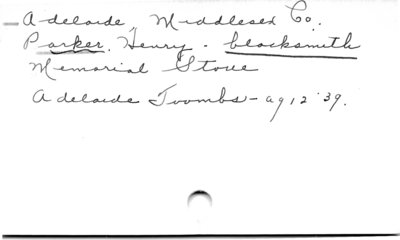 Adelaide, Middlesex Co.
Parker, Henry - blacksmith
Memorial Stone
Adelaide Toombs - ag 12 '39.